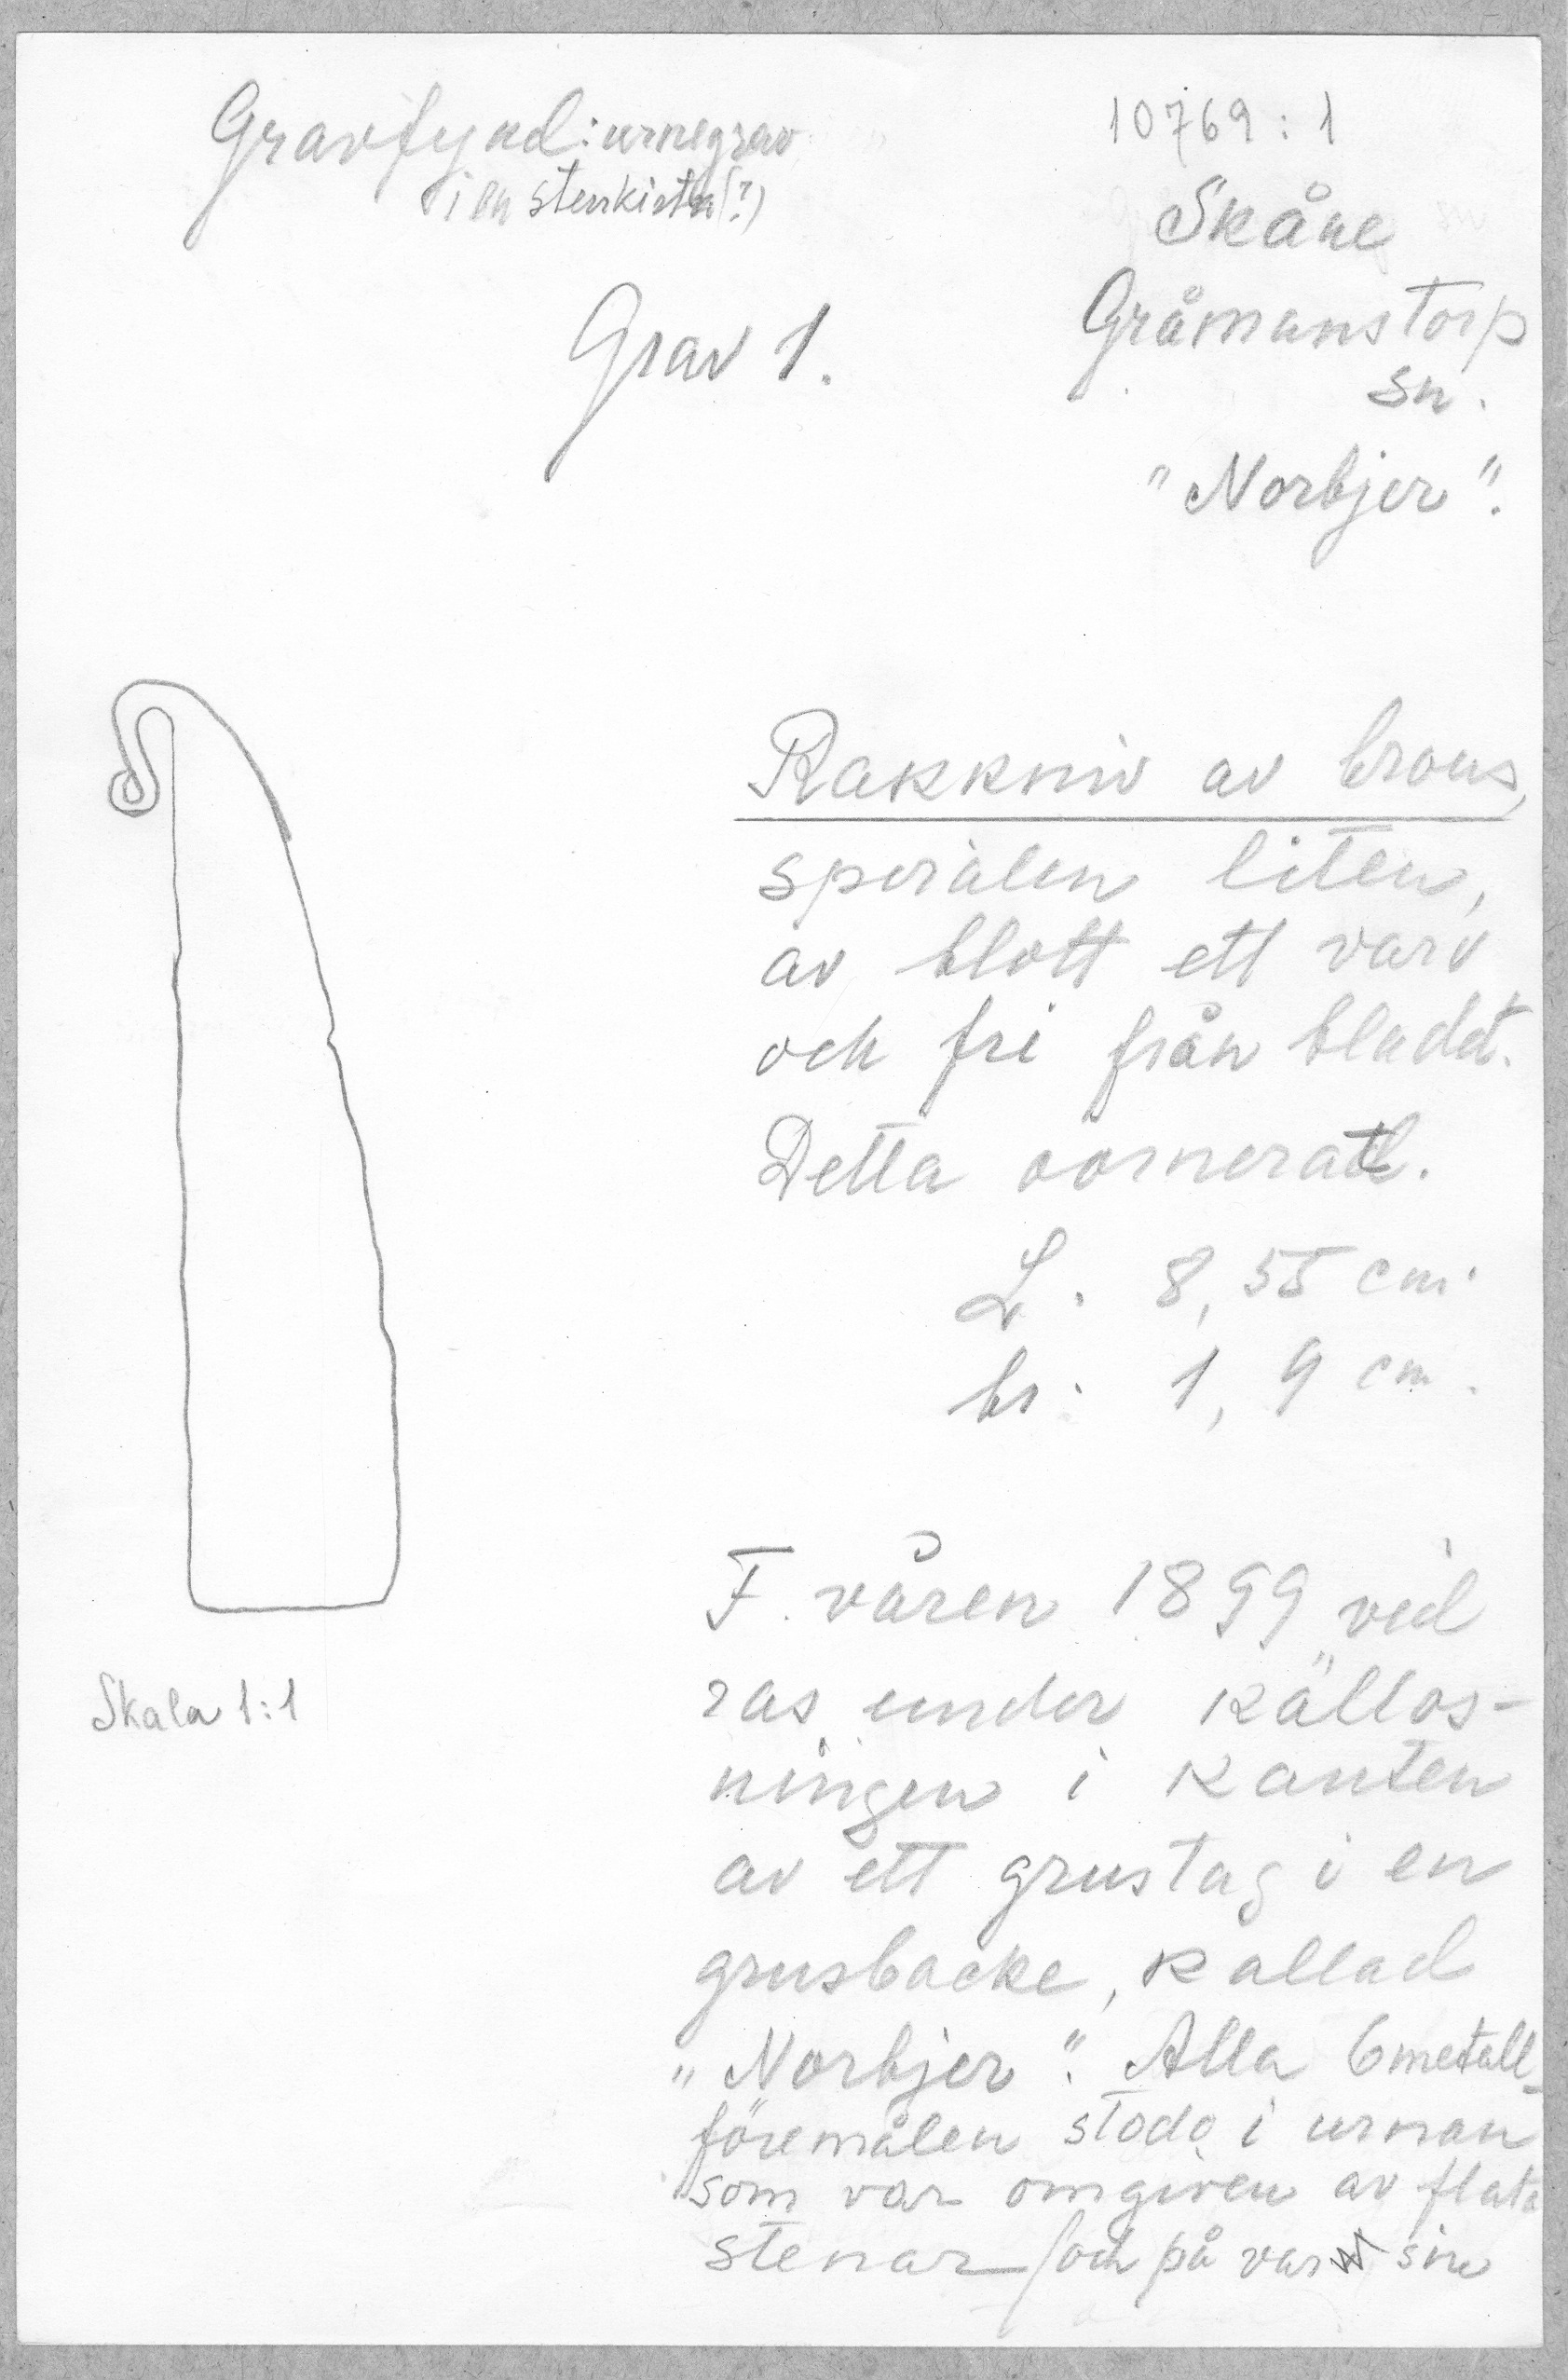 Gravfynd: urnegrav
i en stenkista (?)
10769:1
Skåne
Gråmanstorp
sn.
"Norbjer".
Grav 1.
Rakkniv av brons,
spiralen liten,
av blott ett varv
och fri från bladet.
Detta oornerat.
L. 8,55 cm.
br. 1,9 cm.
Skala 1:1
F. våren 1899 vid
ras under källos-
ningen i kanten
av ett grustag i en
grusbacke, kallad
"Norbjer". Alla 6 metall-
föremålen stodo i urnan
som var omgiven av flata
stenar (och på var sin